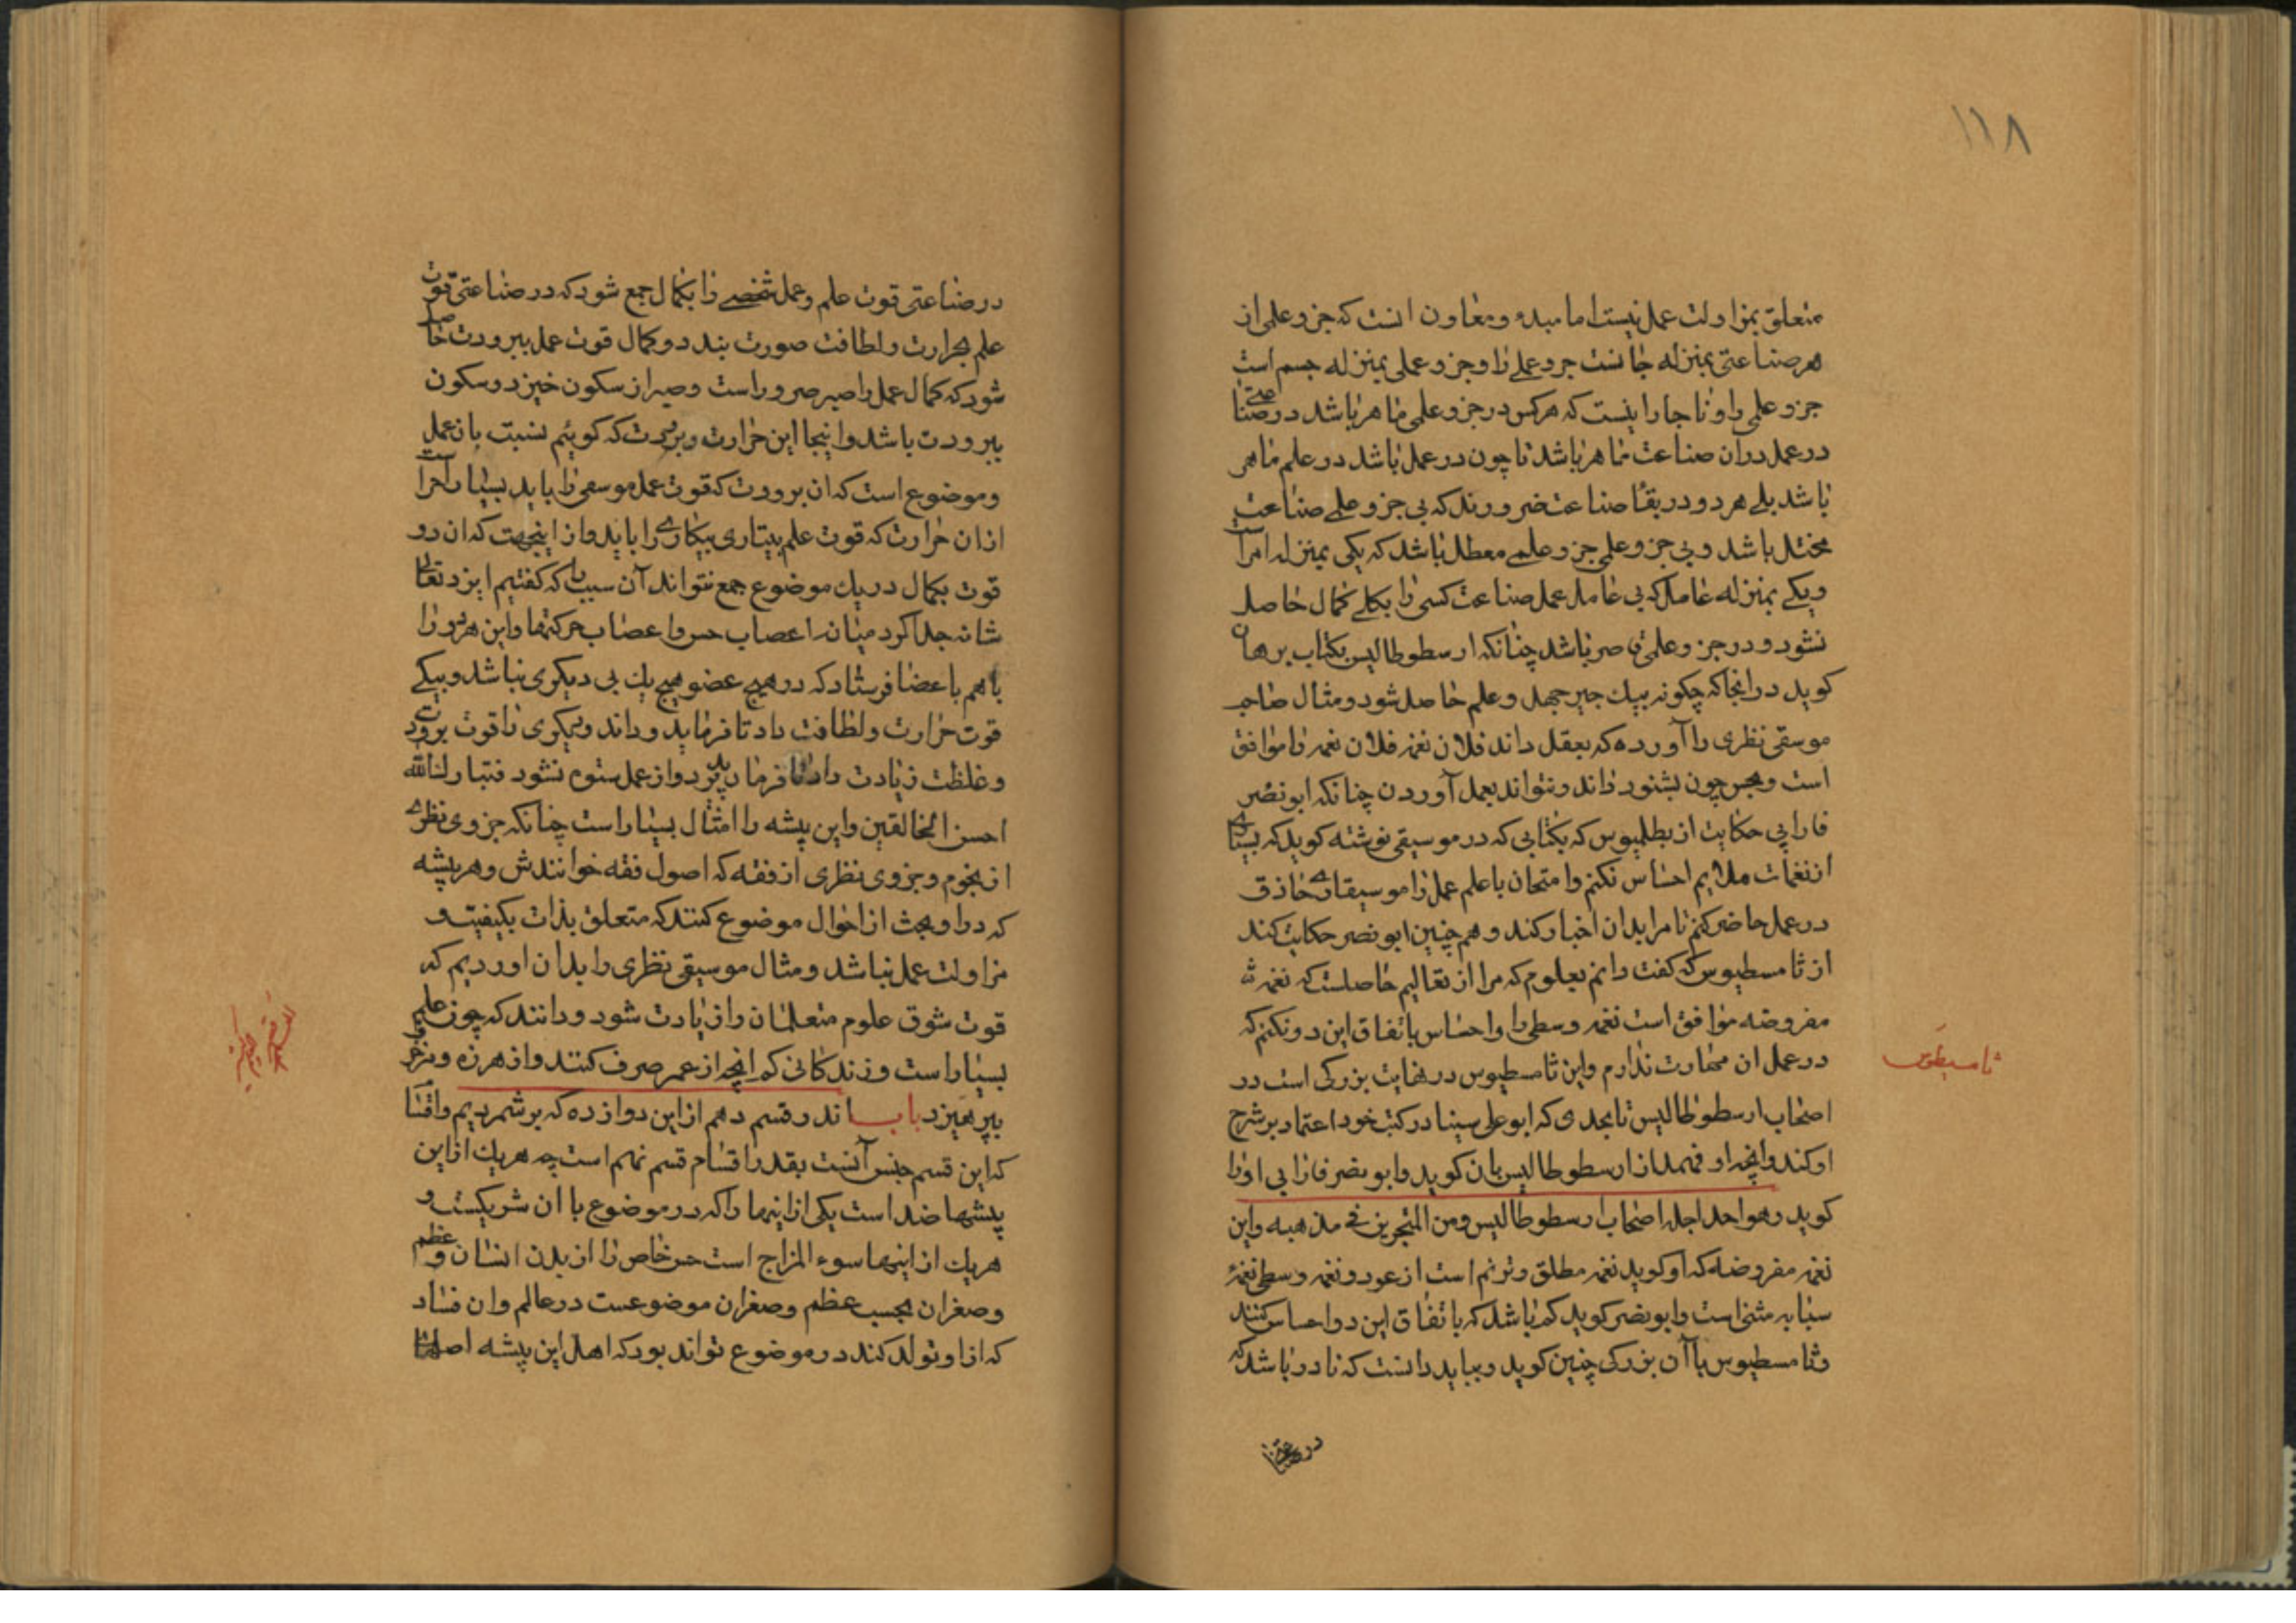 ١١٨
متعلق بمزاولت عمل نیست اما مبدء و معاون انست که جزو علمی از
هر صناعتی بمنزله جانست جزو عملی را و جزو عملی بمنزله جسم است
جزو علمی را و ناچار اینست که هرکس در جزو علمی ماهر باشد در صناعتی
در عمل دران صناعت ماهر باشد تا چون در عمل باشد در علم ماهر
باشد بلی هر دو در بقا صناعت ضرورند که بی جزو علمی صناعت
مختل باشد و بی جزو علمی جزو علمی معطل باشد که یکی بمنزله امراست
ویکی بمنزله عامل که بی عامل عمل صناعت کسی را بکلی کمال حاصل
نشود و در جزو علمی قاصر باشد چنانکه ارسطوطالیس بکتاب برهان
کوید در انجا که چکونه بیک چیز جهل و علم حاصل شود و مثال صاحب
موسقی نظری را آورده که بعقل داند فلان نغمه فلان نغمه را موافق
است و بحس چون بشنود داند و نتواند بعمل آوردن چنانکه ابو نصر
فارابی حکایت از بطلمیوس که بکتابی که در موسیقی نوشته کوید که بسیاری
از نغمات ملایم احساس نکنم و امتحان با علم عمل را موسیقاری حاذق
در عمل حاضر کنم تا مرا بدان اخبار کند و هم چنین ابو نصر حکایت کند
از ثامسطیوس که کفت دانم بعلوم که مرا از تعالیم حاصلست که نغمه
مفروضه موافق است نغمه وسطی را و احساس باتفاق این دو نکنم که
در عمل ان مهارت ندارم و این ثامسطیوس در نهایت بزرکی است در
ثامسیطوس
اصحاب ارسطوطالیس تا بحدی که ابو علی سینا در کتب خود اعتماد بر شرح
او کند و انچه او فهمد از ارسطوطالیس بان کوید و ابو نصر فارابی او را
کوید وهو احد اجله اصحاب ارسطوطالیس ومن المتحرین فی مذهبه و این
نغمه مفروضه که او کوید نغمه مطلق و ترنم است از عود و نغمه وسطی نغمه
سبابه مثنی است و ابو نصر کوید که باشد که باتفاق این دو احساس کنند
و ثامسطیوس با آن بزرکی چنین کوید و بباید دانست که نادر باشد که
در صناعتی
در صناعتی قوت علم و عمل شخصی را بکمال جمع شود که در صناعتی قوت
علم بحرارت و لطافت صورت بندد و کمال قوت عمل ببرودت حاصل
شود که کمال عمل را صبر ضرور است و صبر از سکون خیزد و سکون
ببرودت باشد و اینجا این حرارت و برودت که کوئیم نسبت بان عمل
و موضوع است که ان برودت که قوت عمل موسقی را باید بسیار احراست
ازان حرارت که قوت علم بیتاری بیکاری را باید و از اینجهت که ان دو
قوت بکمال در یک موضوع جمع نتواند آن سبب را که کفتیم ایزد تعالی
شانه جدا کرد میان اعصاب حس و اعصاب حرکتها و این هردو را
باهم باعضا فرستاد که در هیچ عضو هیچ یک بی دیکری نباشد و بیکی
قوت حرارت و لطافت داد تا فرماید و داند و دیکری را قوت برودت
و غلظت زیادت داد تا فرمان پذیرد و از عمل ستوه نشود فتبارک الله
احسن الخالقین و این پیشه را امثال بسیار است چنانکه جزوی نظری
از نجوم و جزوی نظری از فقه که اصول فقه خوانندش و هر پیشه
که در او بحث از احوال موضوع کنند که متعلق بذات بکیفیت و
مزاولت عمل نباشد و مثال موسیقی نظری را بدان اوردیم که
قوت شوق علوم متعلمان را زیادت شود و دانند که چون علم
بسیار است و زندکانی کم انچه از عمر صرف کنند و از هرزه و مزخرف
بپرهیزد باب اندر قسم دهم از این دوازده که برشمردیم و اقسا
که این قسم جنس آنست بقدر اقسام قسم نهم است چه هریک از این
پیشها ضد است یکی از اینها را که در موضوع با ان شریکست و
هریک از اینها سوء المزاج است حس خاص را از بدن انسان و عظم
و صغر ان بحسب عظم و صغر ان موضوعست در عالم و ان فساد
که از او تولد کند در موضوع تواند بود که اهل این پیشه اصلها